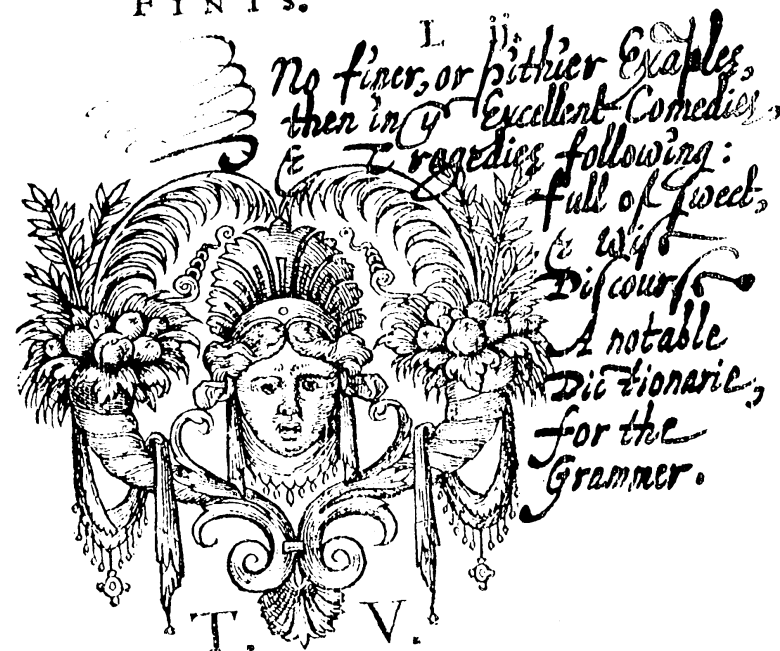 FINIS.
L ij.
No finer, or pithier Exāples,
then in yͤ Excellent Comedies,
& Tragedies following:
full of sweet,
& wise
Discourse
A notable
Dictionarie,
for the
Grammer.
T. V.